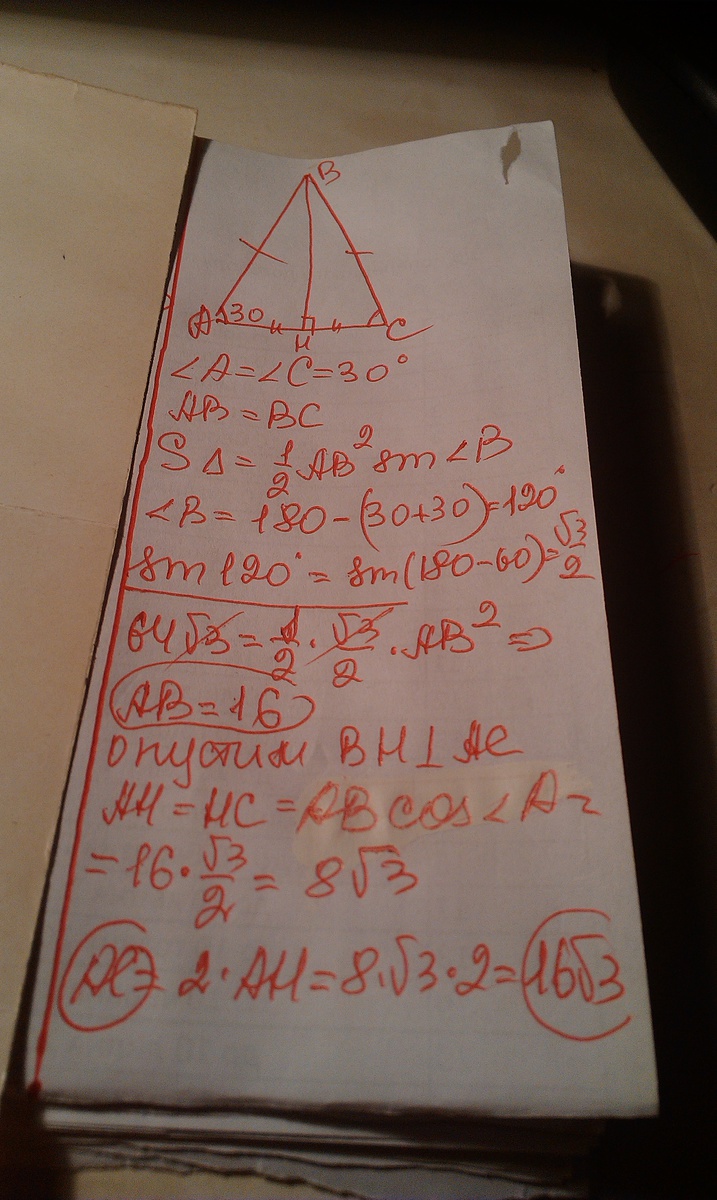 B
A 30 H C
∠A=∠C=30°
AB=BC
S∆=1/2 AB² sin∠B
∠B=180-(30+30)=120°
sin120°=sin(180-60)=√3/2
64√3=1/2·√3/2·AB²⇒
AB=16
опустим BH⊥AC
AH=HC=ABcos∠A=
=16·√3/2=8√3
AC=2·AH=8·√3·2=16√3